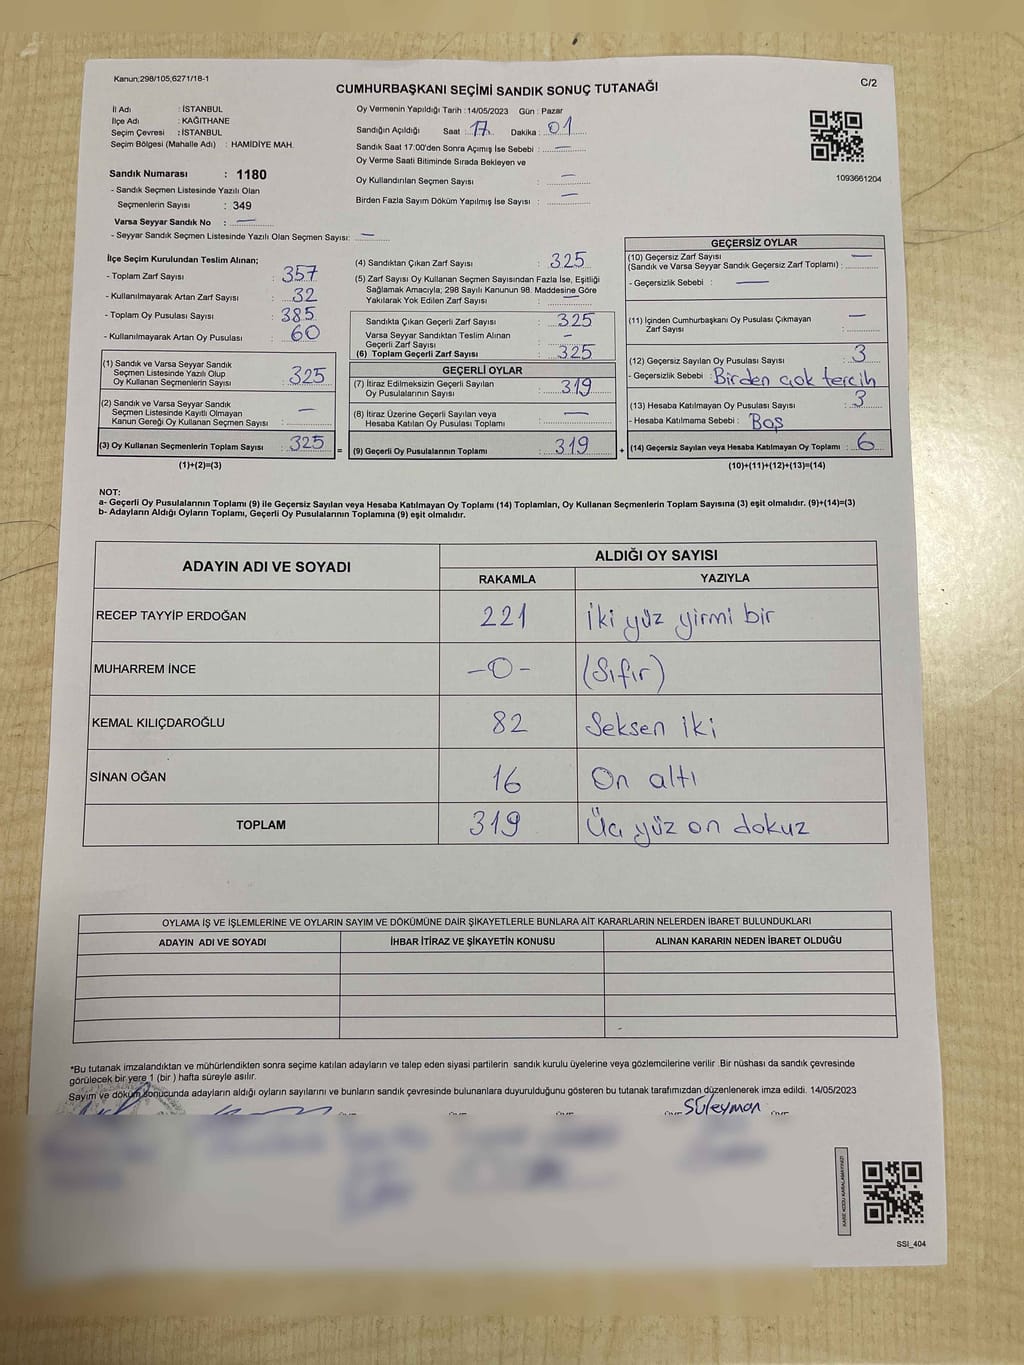 Kanun:298/105,6271/18-1
CUMHURBAŞKANI SEÇİMİ SANDIK SONUÇ TUTANAĞI
C/2
İl Adı : İSTANBUL
İlçe Adı : KAĞITHANE
Seçim Çevresi : İSTANBUL
Seçim Bölgesi (Mahalle Adı) : HAMİDİYE MAH.
Sandık Numarası : 1180
- Sandık Seçmen Listesinde Yazılı Olan
Seçmenlerin Sayısı : 349
Varsa Seyyar Sandık No : —
- Seyyar Sandık Seçmen Listesinde Yazılı Olan Seçmen Sayısı: —
Oy Vermenin Yapıldığı Tarih : 14/05/2023 Gün : Pazar
Sandığın Açıldığı Saat : 17 Dakika : 01
Sandık Saat 17:00'den Sonra Açımış İse Sebebi : —
Oy Verme Saati Bitiminde Sırada Bekleyen ve
Oy Kullandırılan Seçmen Sayısı : —
Birden Fazla Sayım Döküm Yapılmış İse Sayısı : —
1093661204
İlçe Seçim Kurulundan Teslim Alınan;
- Toplam Zarf Sayısı : 357
- Kullanılmayarak Artan Zarf Sayısı : 32
- Toplam Oy Pusulası Sayısı : 385
- Kullanılmayarak Artan Oy Pusulası : 60
(1) Sandık ve Varsa Seyyar Sandık
Seçmen Listesinde Yazılı Olup
Oy Kullanan Seçmenlerin Sayısı : 325
(2) Sandık ve Varsa Seyyar Sandık
Seçmen Listesinde Kayıtlı Olmayan
Kanun Gereği Oy Kullanan Seçmen Sayısı : —
(3) Oy Kullanan Seçmenlerin Toplam Sayısı : 325
(1)+(2)=(3)
(4) Sandıktan Çıkan Zarf Sayısı : 325
(5) Zarf Sayısı Oy Kullanan Seçmen Sayısından Fazla İse, Eşitliği
Sağlamak Amacıyla; 298 Sayılı Kanunun 98. Maddesine Göre
Yakılarak Yok Edilen Zarf Sayısı : —
Sandıkta Çıkan Geçerli Zarf Sayısı : 325
Varsa Seyyar Sandıktan Teslim Alınan
Geçerli Zarf Sayısı : —
(6) Toplam Geçerli Zarf Sayısı : 325
GEÇERLİ OYLAR
(7) İtiraz Edilmeksizin Geçerli Sayılan
Oy Pusulalarının Sayısı : 319
(8) İtiraz Üzerine Geçerli Sayılan veya
Hesaba Katılan Oy Pusulası Toplamı : —
= (9) Geçerli Oy Pusulalarının Toplamı : 319 +
GEÇERSİZ OYLAR
(10) Geçersiz Zarf Sayısı
(Sandık ve Varsa Seyyar Sandık Geçersiz Zarf Toplamı) : —
- Geçersizlik Sebebi : —
(11) İçinden Cumhurbaşkanı Oy Pusulası Çıkmayan
Zarf Sayısı : —
(12) Geçersiz Sayılan Oy Pusulası Sayısı : 3
- Geçersizlik Sebebi : Birden çok tercih
(13) Hesaba Katılmayan Oy Pusulası Sayısı : 3
- Hesaba Katılmama Sebebi : Boş
(14) Geçersiz Sayılan veya Hesaba Katılmayan Oy Toplamı : 6
(10)+(11)+(12)+(13)=(14)
NOT:
a- Geçerli Oy Pusulalarının Toplamı (9) ile Geçersiz Sayılan veya Hesaba Katılmayan Oy Toplamı (14) Toplamları, Oy Kullanan Seçmenlerin Toplam Sayısına (3) eşit olmalıdır. (9)+(14)=(3)
b- Adayların Aldığı Oyların Toplamı, Geçerli Oy Pusulalarının Toplamına (9) eşit olmalıdır.
ADAYIN ADI VE SOYADI
ALDIĞI OY SAYISI
RAKAMLA YAZIYLA
RECEP TAYYİP ERDOĞAN 221 İki yüz yirmi bir
MUHARREM İNCE -0- (Sıfır)
KEMAL KILIÇDAROĞLU 82 Seksen iki
SİNAN OĞAN 16 On altı
TOPLAM 319 Üç yüz on dokuz
OYLAMA İŞ VE İŞLEMLERİNE VE OYLARIN SAYIM VE DÖKÜMÜNE DAİR ŞİKAYETLERLE BUNLARA AİT KARARLARIN NELERDEN İBARET BULUNDUKLARI
ADAYIN ADI VE SOYADI İHBAR İTİRAZ VE ŞİKAYETİN KONUSU ALINAN KARARIN NEDEN İBARET OLDUĞU
*Bu tutanak imzalandıktan ve mühürlendikten sonra seçime katılan adayların ve talep eden siyasi partilerin sandık kurulu üyelerine veya gözlemcilerine verilir .Bir nüshası da sandık çevresinde
görülecek bir yere 1 (bir ) hafta süreyle asılır.
Sayım ve döküm sonucunda adayların aldığı oyların sayılarını ve bunların sandık çevresinde bulunanlara duyurulduğunu gösteren bu tutanak tarafımızdan düzenlenerek imza edildi. 14/05/2023
Süleyman
KARE KODU KARALAMAYINIZ!
SSI_404